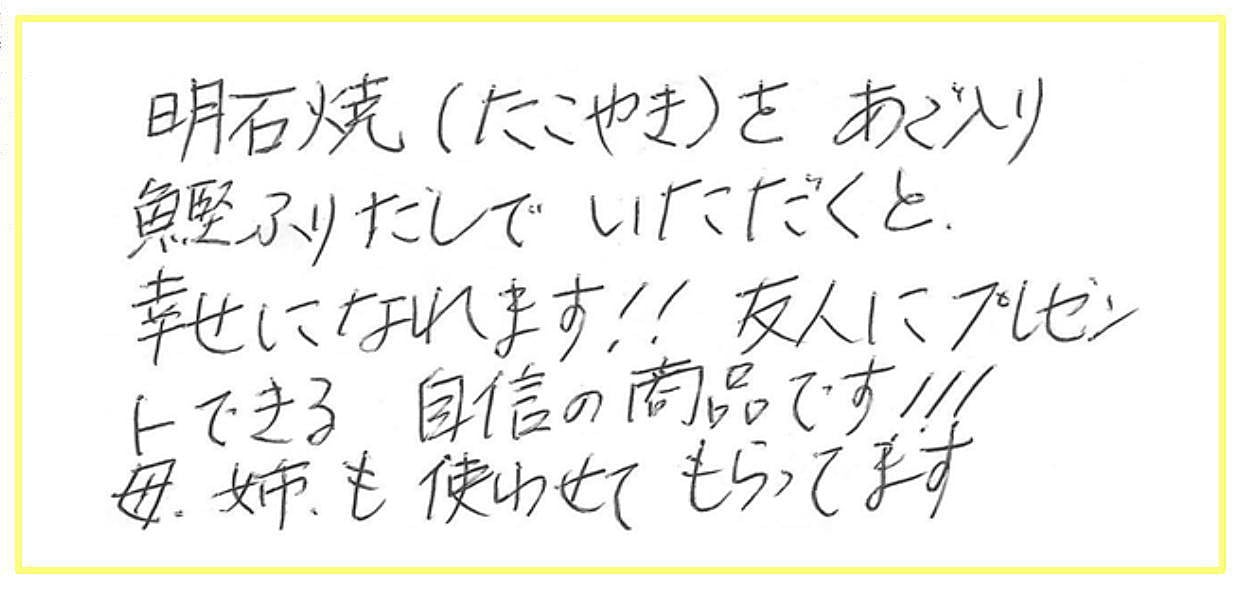 明石焼(たこやき)を あご入り
鰹ふりだしで いただくと、
幸せになれます!! 友人にプレゼン
トできる 自信の商品です!!!
母、姉、も 使わせて もらってます